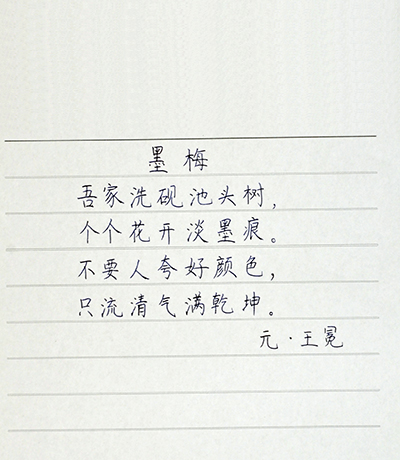 墨梅
吾家洗砚池头树，
个个花开淡墨痕。
不要人夸好颜色，
只流清气满乾坤。
元·王冕